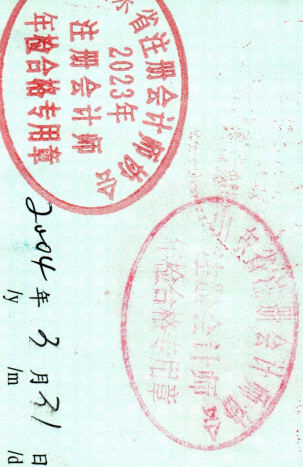 省注册会计师协会
2023年
注册会计师
年检合格专用章
省注册会计师协会
注册会计师
年检合格专用章
2004 年 3 月 31 日
/y /m /d